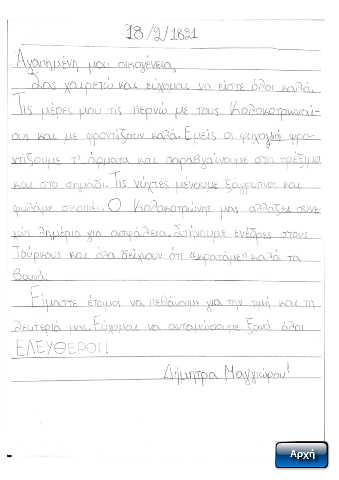 18/2/1821
Αγαπημένη μου οικογένεια,
Σας χαιρετώ και εύχομαι να είστε όλοι καλά.
Τις μέρες μου τις περνώ με τους Κολοκοτρωναί-
ους και με φροντίζουν καλά. Εμείς οι ψυχογιοί φρο-
ντίζουμε τ' άρματα και παραβγαίνουμε στο τρέξιμο
και στο σημάδι. Τις νύχτες μένουμε ξάγρυπνοι και
φυλάμε σκοπιά. Ο Κολοκοτρώνης μας αλλάζει συνε-
χώς λημέρια για ασφάλεια. Στήνουμε ενέδρες στους
Τούρκους και όλα δείχνουν ότι «κρατάμε» καλά τα
βουνά.
Είμαστε έτοιμοι να πεθάνουμε για την τιμή και τη
λευτεριά μας. Εύχομαι να ανταμώσουμε ξανά όλοι
ΕΛΕΥΘΕΡΟΙ!
Δήμητρα Μαγγιώρου!
Αρχή